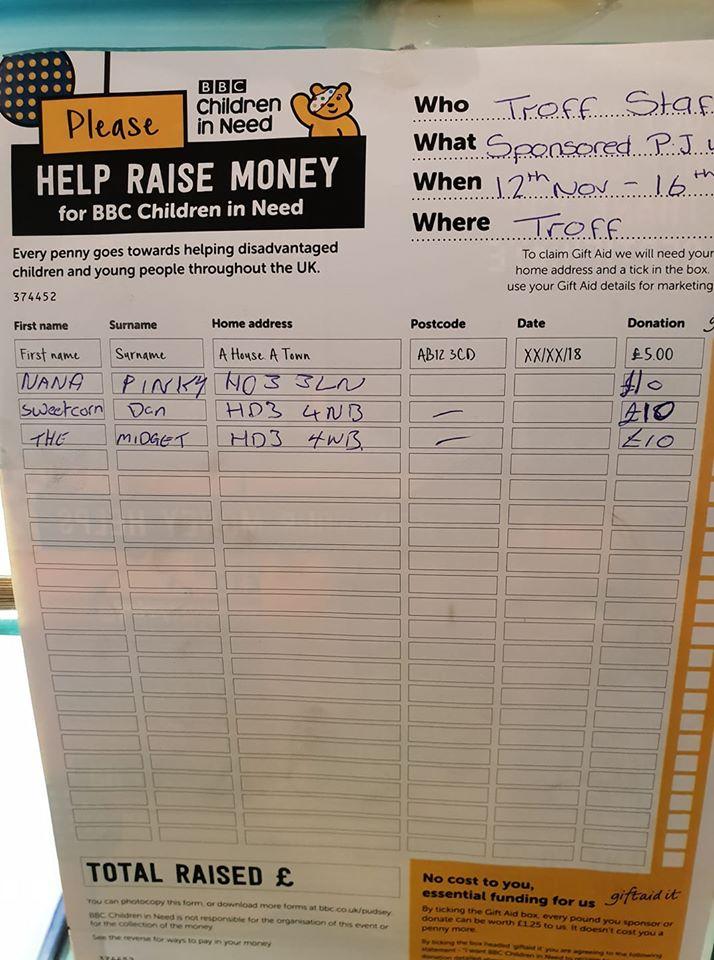 BBC
Children
in Need
Please
HELP RAISE MONEY
for BBC Children in Need
Who Troff Staf
What Sponsored PJ
When 12th Nov - 16th
Where Troff
Every penny goes towards helping disadvantaged
children and young people throughout the UK.
374452
To claim Gift Aid we will need your
home address and a tick in the box.
use your Gift Aid details for marketing
First name Surname Home address Postcode Date Donation
First name Surname A House A Town AB12 3CD XX/XX/18 £5.00
NANA PINKY HO3 3LN £10
Sweetcorn Dan HD3 4NB — £10
THE MIDGET HD3 4WB — £10
TOTAL RAISED £
You can photocopy this form, or download more forms at bbc.co.uk/pudsey.
BBC Children in Need is not responsible for the organisation of this event or
for the collection of the money
See the reverse for ways to pay in your money
No cost to you,
essential funding for us giftaid it
By ticking the Gift Aid box, every pound you sponsor or
donate can be worth £1.25 to us. It doesn't cost you a
penny more.
By ticking the box headed 'giftaid it' you are agreeing to the following